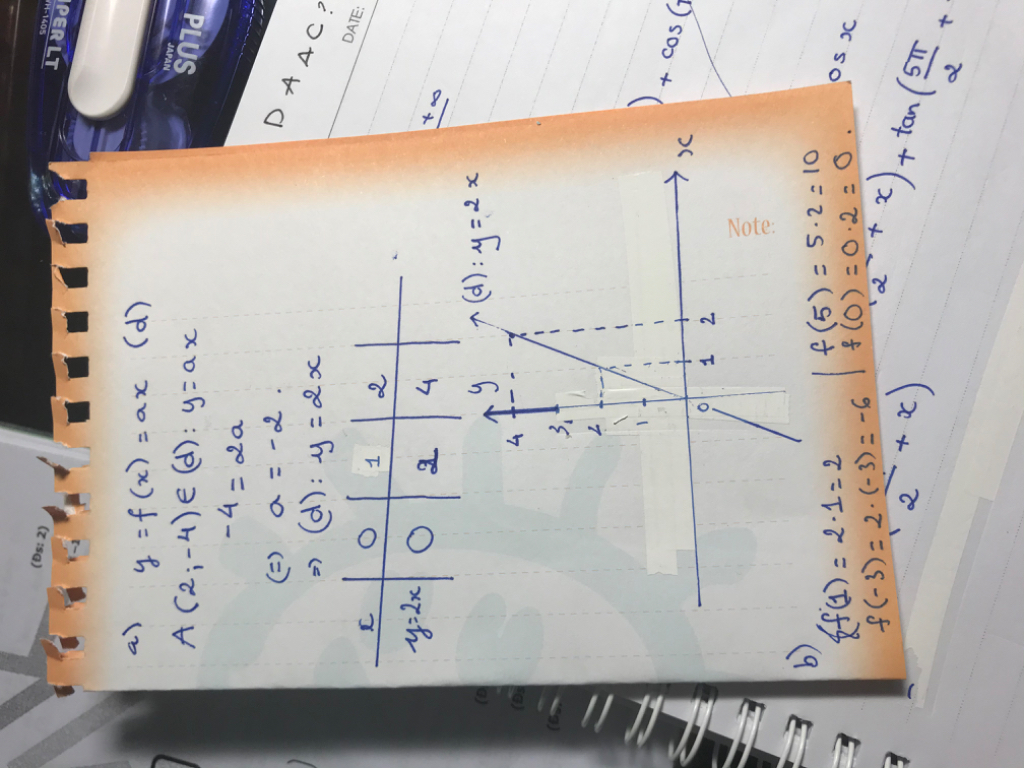 a) y = f(x) = ax (d)
A(2;-4) ∈ (d): y = ax
-4 = 2a
(=) a = -2.
=> (d): y = 2x
x 0 1 2
y=2x 0 2 4
y
(d): y = 2x
4
3
2
1
0 1 2 x
Note:
b) {f(1) = 2.1 = 2 | f(5) = 5.2 = 10
f(-3) = 2.(-3) = -6 | f(0) = 0.2 = 0.
PLUS
JAPAN
PER LT
DATE:
D A A C ?
+∞
) + cos(
os x
2 + x) + tan(5π/2 +
2 + x)
(Ds: 2)